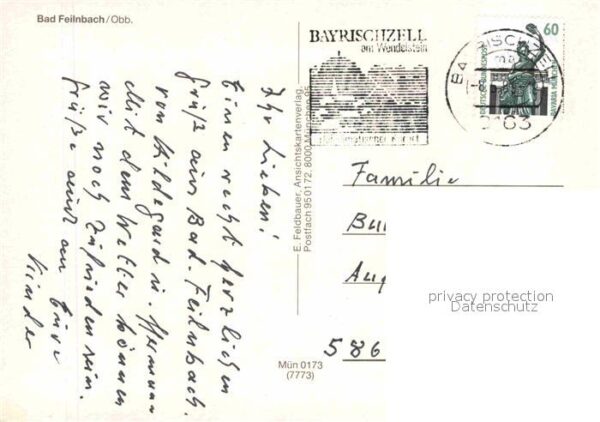 Bad Feilnbach/Obb.
Ihr Lieben!
Einen recht herzlichen
Gruß aus Bad-Feilnbach.
von Hildegard u. Hermann
Mit dem Wetter können
wir noch zufrieden sein.
Grüße auch an Eure
Kinder
E. Feldbauer, Ansichtskartenverlag,
Postfach 950172, 8000 München 95
Mün 0173
(7773)
BAYRISCHZELL
am Wendelstein
BAYRISCHZELL
8163
60
DEUTSCHE BUNDESPOST
BAVARIA MÜNCHEN
Familie
Bu
Aug
586
privacy protection
Datenschutz